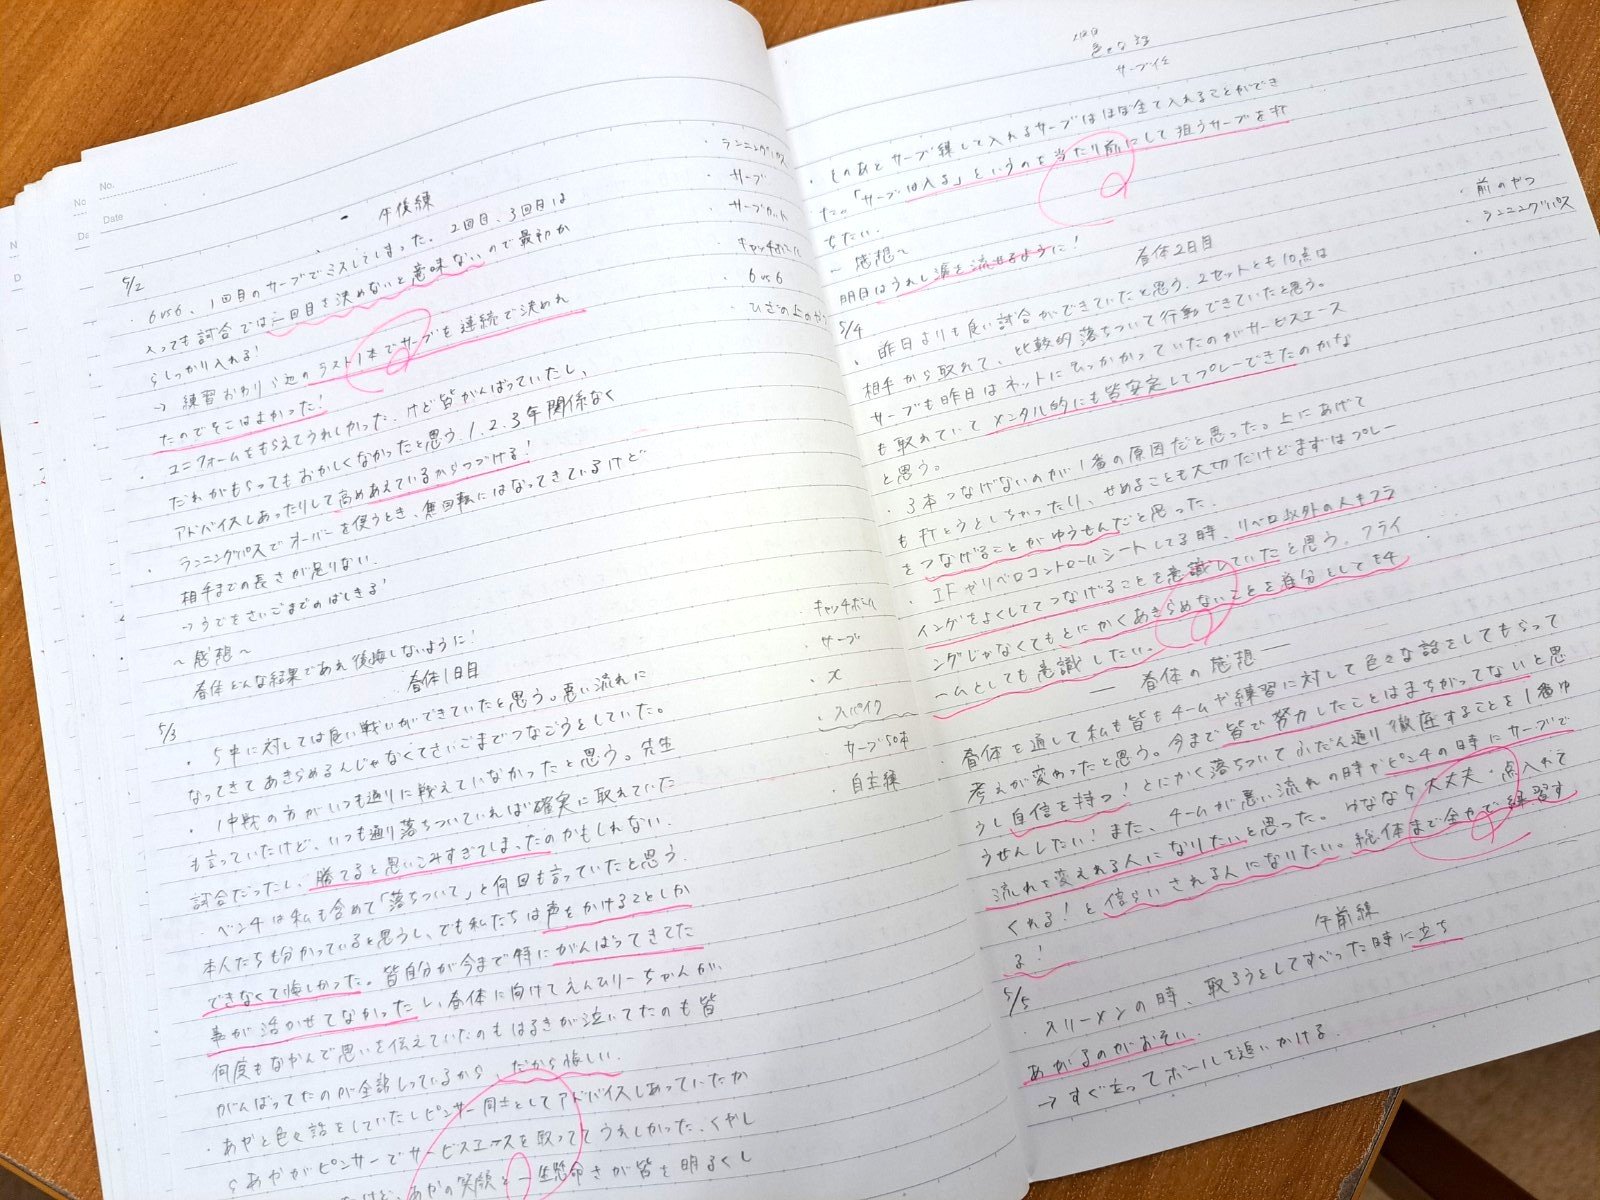 No.
Date
午後練
5/2
・6vs6、1回目のサーブでミスしてしまった。2回目、3回目は
入っても試合では一回目を決めないと意味ないので最初か
らしっかり入れる!
→ 練習おわり〻のラスト1本でサーブを連続で決めれ
たのでそこはよかった!
・ユニフォームをもらえてうれしかった。けど皆がんばっていたし、
だれがもらってもおかしくなかったと思う。1、2、3年関係なく
アドバイスしあったりして高めあえているからつづける!
・ランニングパスでオーバーを使うとき、無回転にはなってきているけど
相手までの長さが足りない。
→うでをさいごまでのばしきる!
〜感想〜
春体どんな結果であれ後悔しないように!
・ランニングパス
・サーブ
・サーブカット
・キャッチボール
・6vs6
・ひざの上のやつ
5/3
春体1日目
・5中に対しては良い戦いができていたと思う。悪い流れに
なってきてあきらめるんじゃなくてさいごまでつなごうとしていた。
・1中戦の方がいつも通りに戦えていなかったと思う。先生
も言っていたけど、いつも通り落ちついていれば確実に取れていた
試合だったし、勝てると思いこみすぎてしまったのかもしれない。
・ベンチは私も含めて「落ちついて」と何回も言っていたと思う。
本人たちも分かっていると思うし、でも私たちは声をかけることしか
できなくて悔しかった。皆自分が今まで特にがんばってきてた
事が活かせてなかったし、春体に向けてえんムリーちゃんが、
何度もなかんで思いを伝えていたのもはるきが泣いてたのも皆
がんばってたのが全部しっているから、だから悔しい。
・あやと色々話をしていたしピンサー同士としてアドバイスしあっていたか
らあやがピンサーでサービスエースを取っててうれしかった。くやし
たけど、あやの笑顔と一生懸命さが皆を明るくし
・キャッチボール
・サーブ
・×
・スパイク
サーブ50本
自主練
サーブ
・そのあとサーブ練して入れるサーブはほぼ全て入れることができ
た。「サーブは入る」というのを当たり前にして狙うサーブを打
ちたい。
〜感想〜
明日はうれし涙を流せるように!
5/4
春体2日目
・前のやつ
・ランニングパス
・昨日よりも良い試合ができていたと思う。2セットとも10点は
相手から取れて、比較的落ちついて行動できていたと思う。
サーブも昨日はネットにひっかかっていたのがサービスエース
も取れていてメンタル的にも皆安定してプレーできたのかな
と思う。
・3本つなげないのが1番の原因だと思った。上にあげて
も打とうとしちゃったり、せめることも大切だけどまずはプレー
をつなげることがゆうせんだと思った。
・IFやリベロコントロールシートしてる時、リベロ以外の人もフラ
イングをよくしててつなげることを意識していたと思う。フライ
ングじゃなくてもとにかくあきらめないことを自分としてもチ
ームとしても意識したい。
― 春体の感想 ―
・春体を通して私も皆もチームや練習に対して色々な話をしてもらって
考えが変わったと思う。今まで皆で努力したことはまちがってないと思
うし自信を持つ!とにかく落ちついてふだん通り徹底することを1番ゆ
うせんしたい!また、チームが悪い流れの時やピンチの時にサーブで
流れを変えれる人になりたいと思った。はななら大丈夫・点入れて
くれる!と信らいされる人になりたい。総体まで全力で練習す
る!
5/5
午前練
・スリーメンの時、取ろうとしてすべった時に立ち
あがるのがおそい。
→すぐ立ってボールを追いかける。